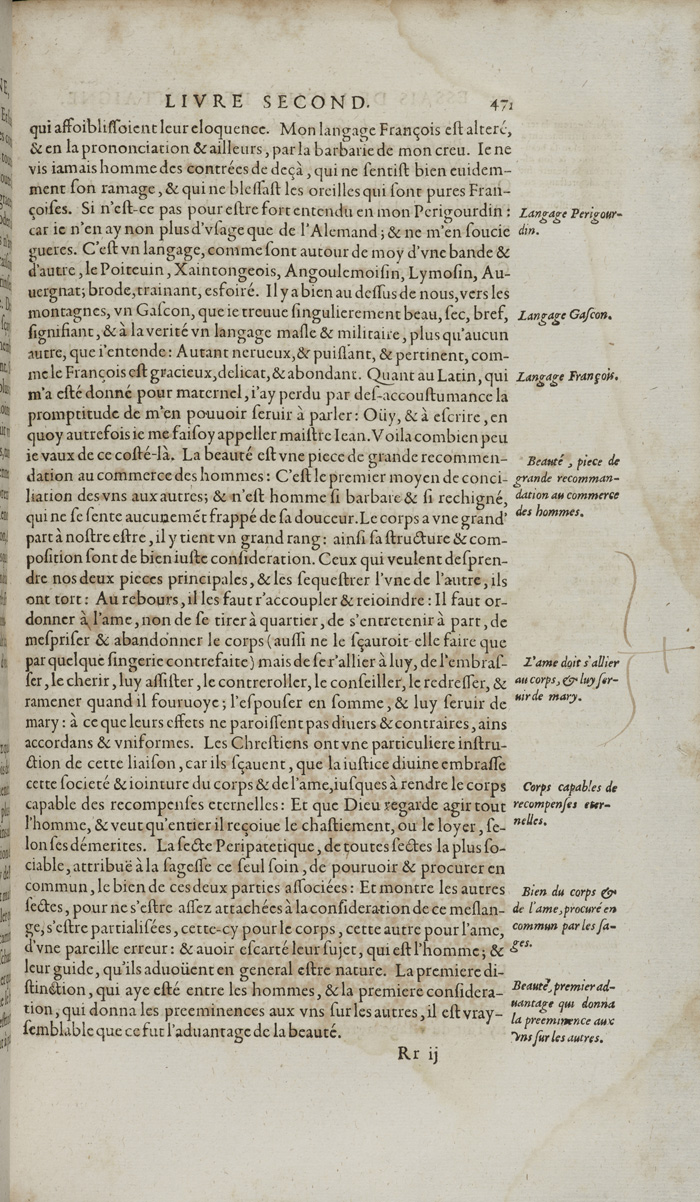 LIVRE SECOND. 471
qui affoibliſſoient leur eloquence. Mon langage François eſt alteré,
& en la prononciation & ailleurs, par la barbarie de mon creu. Ie ne
vis iamais homme des contrées de deçà, qui ne ſentiſt bien euidem-
ment ſon ramage, & qui ne bleſſaſt les oreilles qui ſont pures Fran-
çoiſes. Si n'eſt-ce pas pour eſtre fort entendu en mon Perigourdin:
car ie n'en ay non plus d'vſage que de l'Alemand; & ne m'en ſoucie
gueres. C'eſt vn langage, comme ſont autour de moy d'vne bande &
d'autre, le Poiteuin, Xaintongeois, Angoulemoiſin, Lymoſin, Au-
uergnat; brode, trainant, esfoiré. Il y a bien au deſſus de nous, vers les
montagnes, vn Gaſcon, que ie treuue ſingulierement beau, ſec, bref,
ſignifiant, & à la verité vn langage maſle & militaire, plus qu'aucun
autre, que i'entende: Autant nerueux, & puiſſant, & pertinent, com-
me le François eſt gracieux, delicat, & abondant. Quant au Latin, qui
m'a eſté donné pour maternel, i'ay perdu par deſ-accouſtumance la
promptitude de m'en pouuoir ſeruir à parler: Oüy, & à eſcrire, en
quoy autrefois ie me faiſoy appeller maiſtre Iean. Voila combien peu
ie vaux de ce coſté-là. La beauté eſt vne piece de grande recommen-
dation au commerce des hommes: C'eſt le premier moyen de conci-
liation des vns aux autres; & n'eſt homme ſi barbare & ſi rechigné,
qui ne ſe ſente aucunemẽt frappé de ſa douceur. Le corps a vne grand'
part à noſtre eſtre, il y tient vn grand rang: ainſi ſa ſtructure & com-
poſition ſont de bien iuſte conſideration. Ceux qui veulent deſpren-
dre nos deux pieces principales, & les ſequeſtrer l'vne de l'autre, ils
ont tort: Au rebours, il les faut r'accoupler & reioindre: Il faut or-
donner à l'ame, non de ſe tirer à quartier, de s'entretenir à part, de
meſpriſer & abandonner le corps (auſſi ne le ſçauroit elle faire que
par quelque ſingerie contrefaite) mais de ſe r'allier à luy, de l'embraſ-
ſer, le cherir, luy aſſiſter, le controller, le conſeiller, le redreſſer, &
ramener quand il fouruoye; l'eſpouſer en ſomme, & luy ſeruir de
mary: à ce que leurs effets ne paroiſſent pas diuers & contraires, ains
accordans & vniformes. Les Chreſtiens ont vne particuliere inſtru-
ction de cette liaiſon, car ils ſçauent, que la iuſtice diuine embraſſe
cette ſocieté & iointure du corps & de l'ame, iuſques à rendre le corps
capable des recompenſes eternelles: Et que Dieu regarde agir tout
l'homme, & veut qu'entier il reçoiue le chaſtiement, ou le loyer, ſe-
lon ſes démerites. La ſecte Peripatetique, de toutes ſectes la plus ſo-
ciable, attribuë à la ſageſſe ce ſeul ſoin, de pouruoir & procurer en
commun, le bien de ces deux parties aſſociées: Et montre les autres
ſectes, pour ne s'eſtre aſſez attachées à la conſideration de ce meſlan-
ge, s'eſtre partialiſées, cette-cy pour le corps, cette autre pour l'ame,
d'vne pareille erreur: & auoir eſcarté leur ſujet, qui eſt l'homme; &
leur guide, qu'ils aduoüent en general eſtre nature. La premiere di-
ſtinction, qui aye eſté entre les hommes, & la premiere conſidera-
tion, qui donna les preeminences aux vns ſur les autres, il eſt vray-
ſemblable que ce fut l'aduantage de la beauté.
Rr ij
Langage Perigour-
din.
Langage Gaſcon.
Langage François.
Beauté, piece de
grande recomman-
dation au commerce
des hommes.
L'ame doit s'allier
au corps, & luy ſer-
uir de mary.
Corps capables de
recompenſes eter-
nelles.
Bien du corps &
de l'ame, procuré en
commun par les ſa-
ges.
Beauté, premier ad-
uantage qui donna
la preeminence aux
vns ſur les autres.